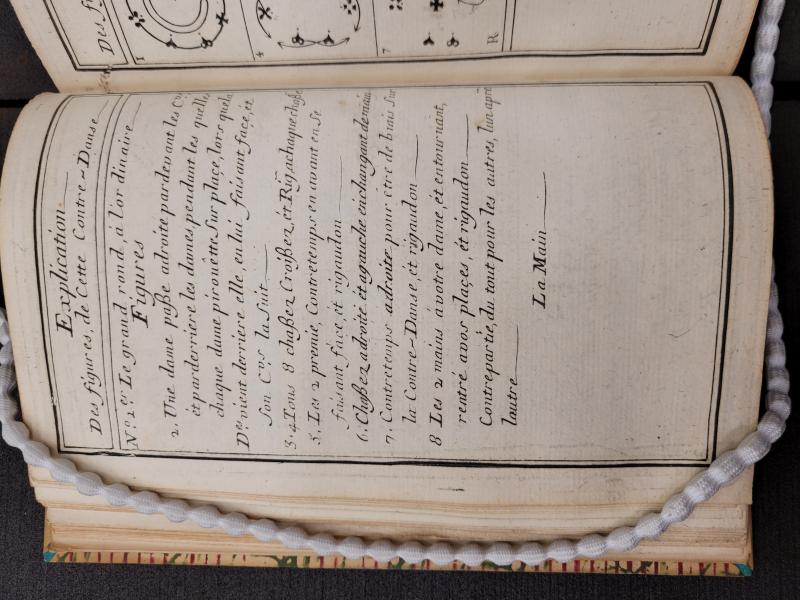 Explication
Des figures, de Cette Contre-Danse
N.º 1.er Le grand rond, à l'ordinaire
Figures
2. Une dame paße adroite pardevant les C.rs
et parderriere les dames, pendant les quelles
chaque dame pirouëtte sur place, lors quela
D.me vient derriere elle, en lui faisant face, et
son C.rs la suit
3. 4 Tous 8 chaßez Croißez et Rig. achaque chaße
5. Les 2 premie, Contretemps en avant en se
faisant face, et rigaudon
6. Chaßez adroite et agauche en changeant demain
7. Contretemps adroite pour être de biais sur
la Contre-Danse, et rigaudon
8 Les 2 mains àvotre dame, et entournant,
rentré avos plaçes, et rigaudon
Contrepartie, du tout pour les autres, lun aprè
lautre
La Main
Des
1
4
7
R